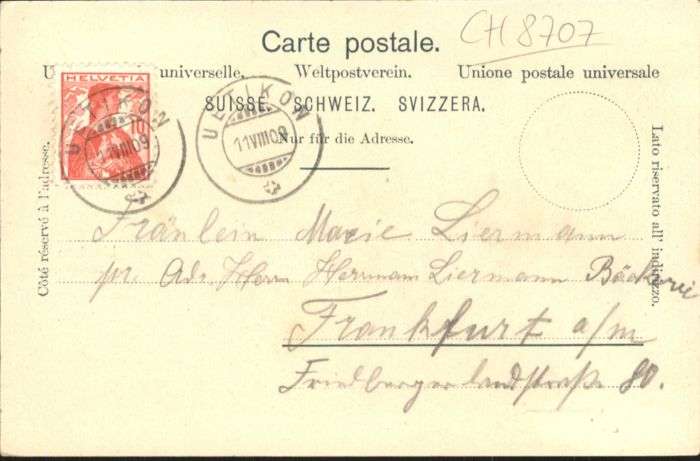 CH 8707
Carte postale.
universelle. Weltpostverein. Unione postale universale
SUISSE. SCHWEIZ. SVIZZERA.
Nur für die Adresse.
HELVETIA
10
UETIKON
11VIII09
UETIKON
11VIII09
Côté réservé à l'adresse.
Lato riservato all' indirizzo.
Fräulein Marie Liermann
pr. Adr. Herrn Herrmann Liermann Bäckerei
Frankfurt a/m
Friedbergerlandstraße 80.